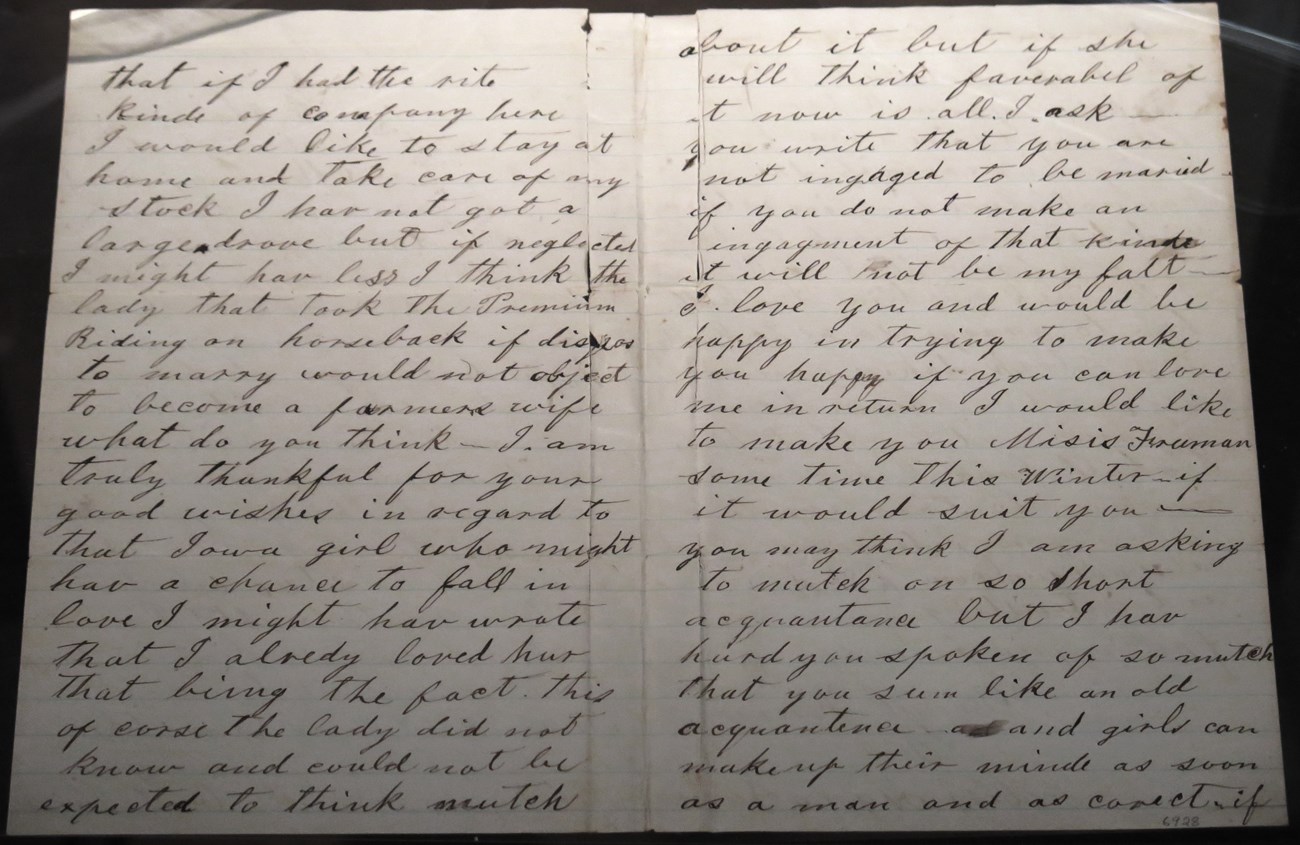 that if I had the rite
kinde of company here
I would like to stay at
home and take care of my
stock I hav not got a
large drove but if neglected
I might hav less I think the
lady that took the Premium
Riding on horseback if dispos
to marry would not object
to become a farmers wife
what do you think — I am
truly thankful for your
good wishes in regard to
that Iowa girl who might
hav a chance to fall in
love I might hav wrote
that I alredy loved hur
that being the fact. this
of corse the lady did not
know and could not be
expected to think mutch
about it but if she
will think faverabel of
it now is all I ask —
you write that you are
not ingaged to be maried
if you do not make an
ingagment of that kinde
it will not be my falt —
I love you and would be
happy in trying to make
you happy if you can love
me in return I would like
to make you Misis Freeman
some time this Winter — if
it would suit you —
you may think I am asking
to mutch on so short
acquantance but I hav
hurd you spoken of so mutch
that you seem like an old
acquantence and girls can
make up their minde as soon
as a man and as corect — if
6928